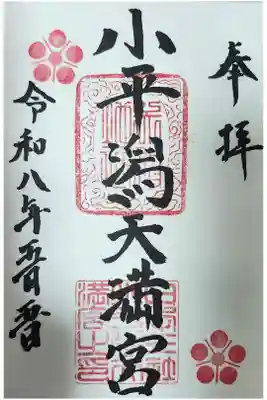 奉拝
小平潟天満宮
令和八年